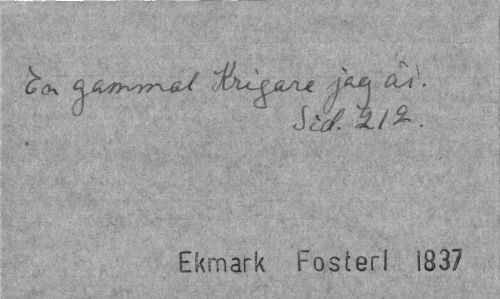 En gammal Krigare jag är.
Sid. 212.
Ekmark Fosterl 1837